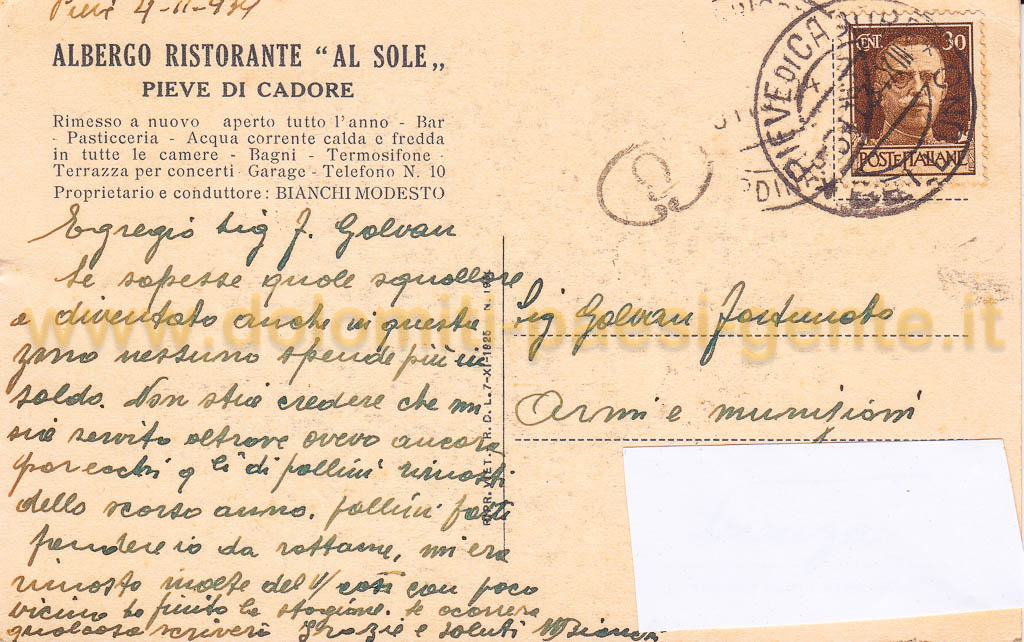 Pieve 4-11-934
ALBERGO RISTORANTE “AL SOLE„
PIEVE DI CADORE
Rimesso a nuovo aperto tutto l'anno - Bar
- Pasticceria - Acqua corrente calda e fredda
in tutte le camere - Bagni - Termosifone -
Terrazza per concerti - Garage - Telefono N. 10
Proprietario e conduttore: BIANCHI MODESTO
Egregio Sig F. Galvan
Se sapesse quale squallore
è diventato anche in questa
zona nessuno spende più un
soldo. Non stia credere che mi
sia servito altrove avevo ancora
parecchi di pallini rimasti
dello scorso anno. pallini fatti
fondere io da rottame, mi era
rimasto inoltre del con poco
vicino ho finito la stagione. Se ocorrerà
qualcosa scriverò Grazie e saluti MBianchi
RIPR. VIET. R. D. L. 7-XI-1925 N. 19
CENT. 30
POSTE ITALIANE
PIEVE DI CADORE
Sig Galvan Fortunato
Armi e munizioni
www.dolomiti-paesi-gente.it